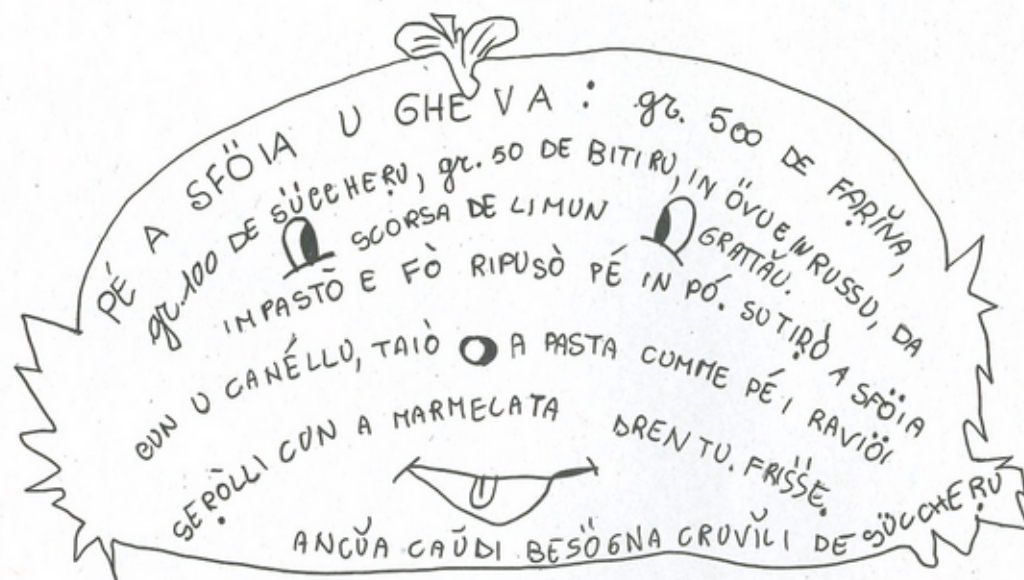 PÉ A SFÖIA U GHE VA : gr. 500 DE FARĬNA,
gr. 100 DE SÜCCHEṚU, gr. 50 DE BITIRU, IN ÖVU E IN RUSSU, DA
SCORSA DE LIMUN GRATTĂU.
IMPASTÒ E FÒ RIPUSÒ PÉ IN PÓ. SUTIṚÒ A SFÖIA
CUN U CANÉLLU, TAIÒ A PASTA CUMME PÉ I RAVIÖI
SEṚÒLLI CUN A MARMELATA DRENTU. FRISSE.
ANCŬA CAŬDI BESÖGNA CRUVĬLI DE SÜCCHEṚU